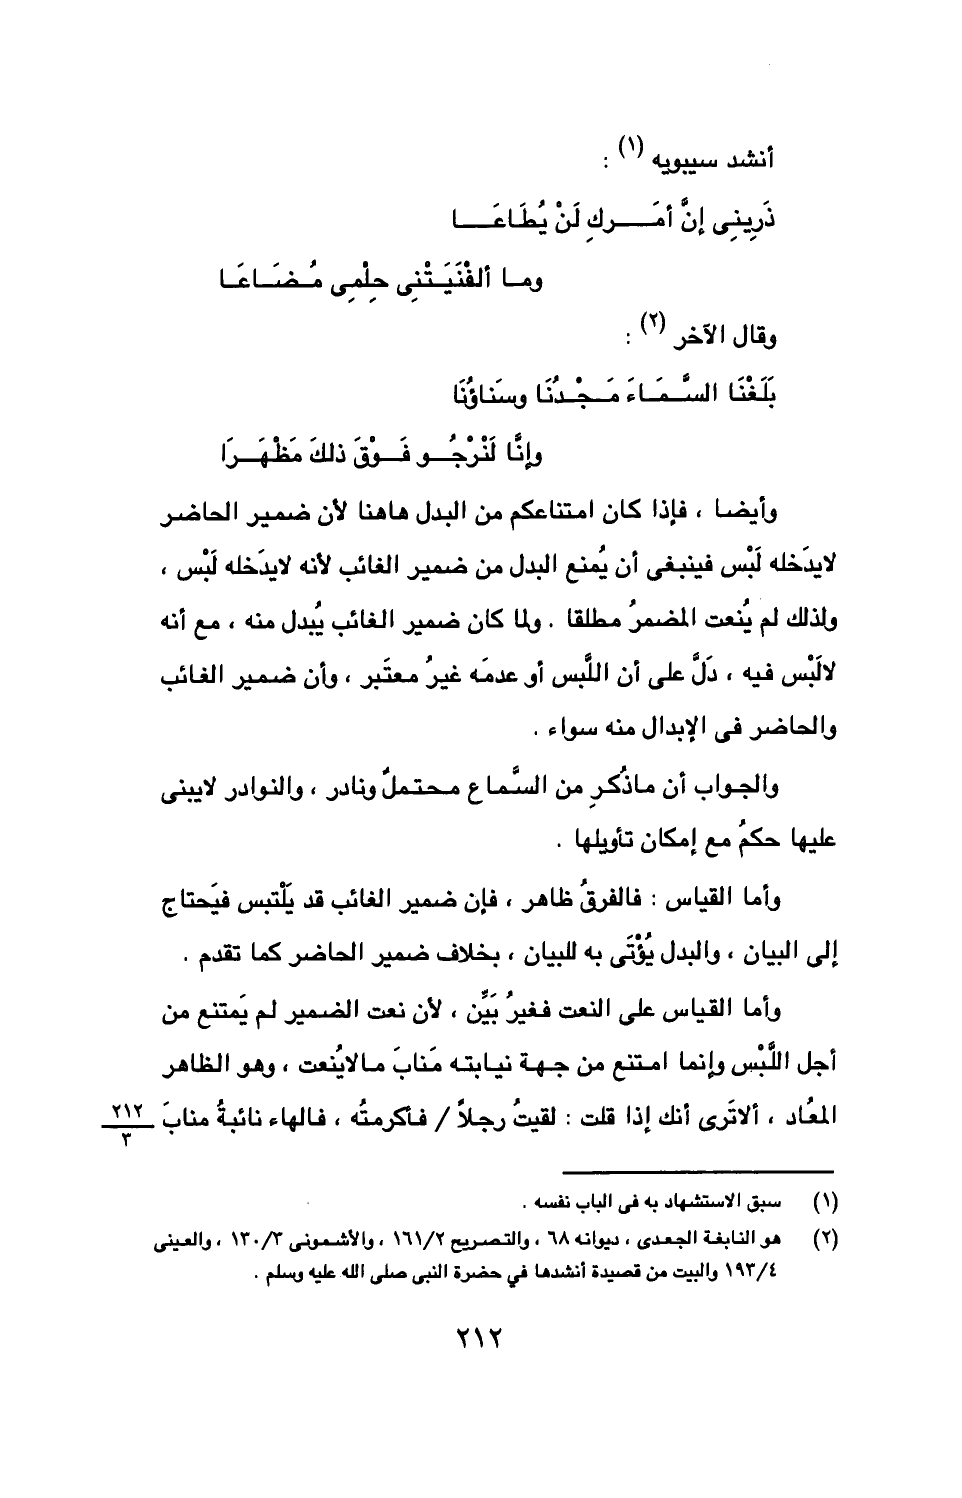 أنشد سيبويه (١) :
ذَرِينِى إنَّ أمَـــرِكِ لَنْ يُطَاعَـــا
ومـا ألفْنَيَـتْنِى حِلْمِى مُـضَـاعَـا
وقال الآخر (٢) :
بَلَغْنَا السَّـمَـاءَ مَـجْـدُنَا وسَناؤُنَا
وإنَّا لَنْرْجُـو فَـوْقَ ذلكَ مَظْهَـرَا
وأيضا ، فإذا كان امتناعكم من البدل هاهنا لأن ضمير الحاضر
لايدَخله لَبْس فينبغى أن يُمنع البدل من ضمير الغائب لأنه لايدَخله لَبْس ،
ولذلك لم يُنعت المضمرُ مطلقا . ولما كان ضمير الغائب يُبدل منه ، مع أنه
لالَبْس فيه ، دَلَّ على أن اللَّبس أو عدمَه غيرُ معتَبر ، وأن ضمير الغائب
والحاضر فى الإبدال منه سواء .
والجواب أن ماذُكرِ من السَّماع محتملُ ونادر ، والنوادر لايبنى
عليها حكمُ مع إمكان تأويلها .
وأما القياس : فالفرقُ ظاهر ، فإن ضمير الغائب قد يَلْتبس فيَحتاج
إلى البيان ، والبدل يُؤْتَى به للبيان ، بخلاف ضمير الحاضر كما تقدم .
وأما القياس على النعت فغيرُ بَيِّن ، لأن نعت الضمير لم يَمتنع من
أجل اللَّبْس وإنما امتنع من جهة نيابته مَنابَ مالايُنعت ، وهو الظاهر
المعُاد ، ألاتَرى أنك إذا قلت : لقيتُ رجلاً / فأكرمتُه ، فالهاء نائبةُ منابَ ٢١٢/٣
(١) سبق الاستشهاد به فى الباب نفسه .
(٢) هو النابغة الجعدى ، ديوانه ٦٨ ، والتصريح ١٦١/٢ ، والأشمونى ١٣٠/٣ ، والعينى
١٩٣/٤ والبيت من قصيدة أنشدها في حضرة النبى صلى الله عليه وسلم .
٢١٢